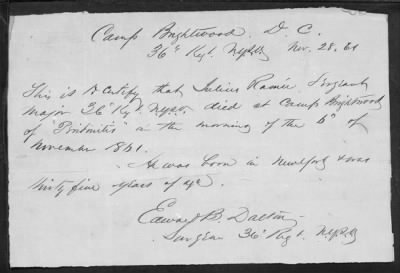 Camp Brightwood, D. C.
36" Regt. NYSV Nov. 28. 61
This is to certify that Julius Ramée, Sergeant
Major 36" Regt NYSV. died at Camp Brightwood
of "Peritonitis" in the morning of the 6" of
November 1861.
He was born in New York & was
thirty five years of age.
Edward B. Dalton,
Surgeon 36" Regt. NYSV